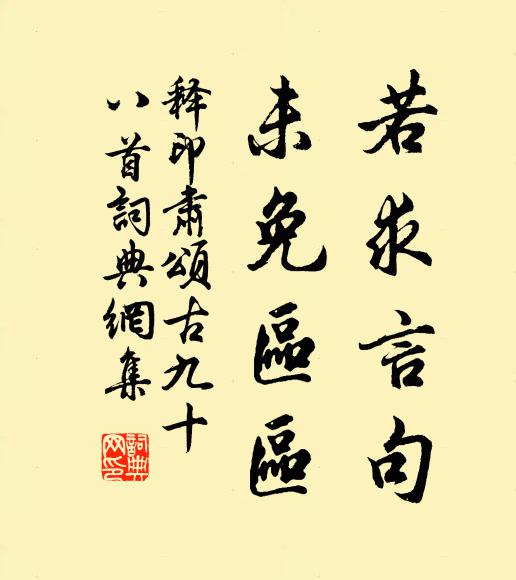 若求言句
未免區區
释印肃頌古九十
八首詞典網集
詞典网印